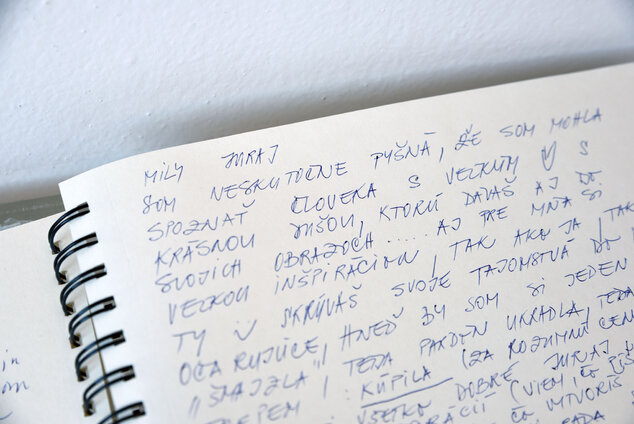 MILÝ JURAJ
SOM NESKUTOČNE PYŠNÁ, ŽE SOM MOHLA
SPOZNAŤ ČLOVEKA S VEĽKÝM ♡ S
KRÁSNOU DUŠOU, KTORÚ DÁVAŠ AJ DO
SVOJICH OBRAZOCH.... AJ PRE MŇA SI
VEĽKOU INŠPIRÁCIOU, TAK AKO JA, TAK
TY SKRÝVAŠ SVOJE TAJOMSTVÁ DO
OČARUJÚCE, HNEĎ BY SOM SI JEDEN
"ŠMAJZLA", TEDA PARDÓN UKRADLA, TEDA
KÚPILA (ZA ROZUMNÚ CEN
VŠETKO DOBRÉ JURAJ
(VIEM, ČO
ČO VYTVORÍŠ
in